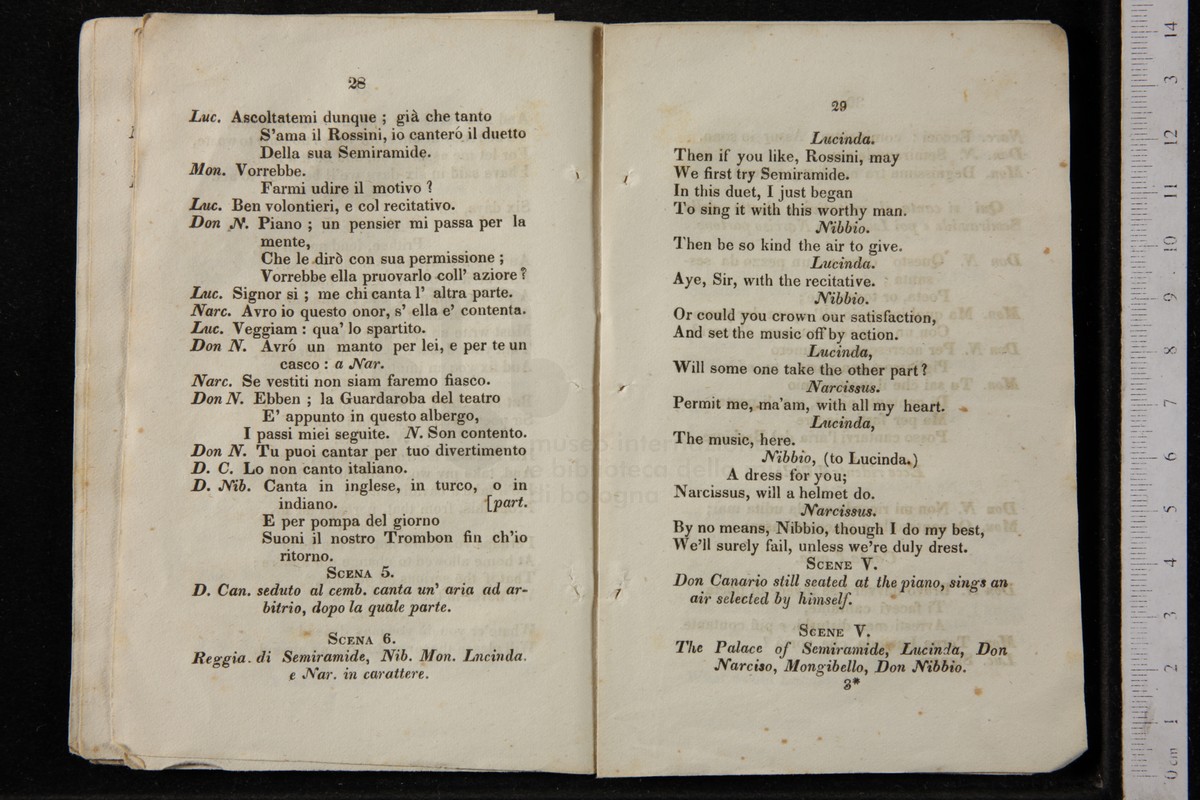 28
Luc. Ascoltatemi dunque ; già che tanto
S'ama il Rossini, io canteró il duetto
Della sua Semiramide.
Mon. Vorrebbe.
Farmi udire il motivo ?
Luc. Ben volontieri, e col recitativo.
Don N. Piano ; un pensier mi passa per la
mente,
Che le dirò con sua permissione ;
Vorrebbe ella pruovarlo coll' aziore ?
Luc. Signor si ; me chi canta l' altra parte.
Narc. Avro io questo onor, s' ella e' contenta.
Luc. Veggiam : qua' lo spartito.
Don N. Avró un manto per lei, e per te un
casco : a Nar.
Narc. Se vestiti non siam faremo fiasco.
Don N. Ebben ; la Guardaroba del teatro
E' appunto in questo albergo,
I passi miei seguite. N. Son contento.
Don N. Tu puoi cantar per tuo divertimento
D. C. Lo non canto italiano.
D. Nib. Canta in inglese, in turco, o in
indiano. [part.
E per pompa del giorno
Suoni il nostro Trombon fin ch'io
ritorno.
Scena 5.
D. Can. seduto al cemb. canta un' aria ad ar-
bitrio, dopo la quale parte.
Scena 6.
Reggia. di Semiramide, Nib. Mon. Lncinda.
e Nar. in carattere.
29
Lucinda.
Then if you like, Rossini, may
We first try Semiramide.
In this duet, I just began
To sing it with this worthy man.
Nibbio.
Then be so kind the air to give.
Lucinda.
Aye, Sir, with the recitative.
Nibbio.
Or could you crown our satisfaction,
And set the music off by action.
Lucinda,
Will some one take the other part ?
Narcissus.
Permit me, ma'am, with all my heart.
Lucinda,
The music, here.
Nibbio, (to Lucinda.)
A dress for you;
Narcissus, will a helmet do.
Narcissus.
By no means, Nibbio, though I do my best,
We'll surely fail, unless we're duly drest.
Scene V.
Don Canario still seated at the piano, sings an
air selected by himself.
Scene V.
The Palace of Semiramide, Lucinda, Don
Narciso, Mongibello, Don Nibbio.
3*
14
3
12
11
10
9
8
7
6
5
4
3
2
1
0 cm